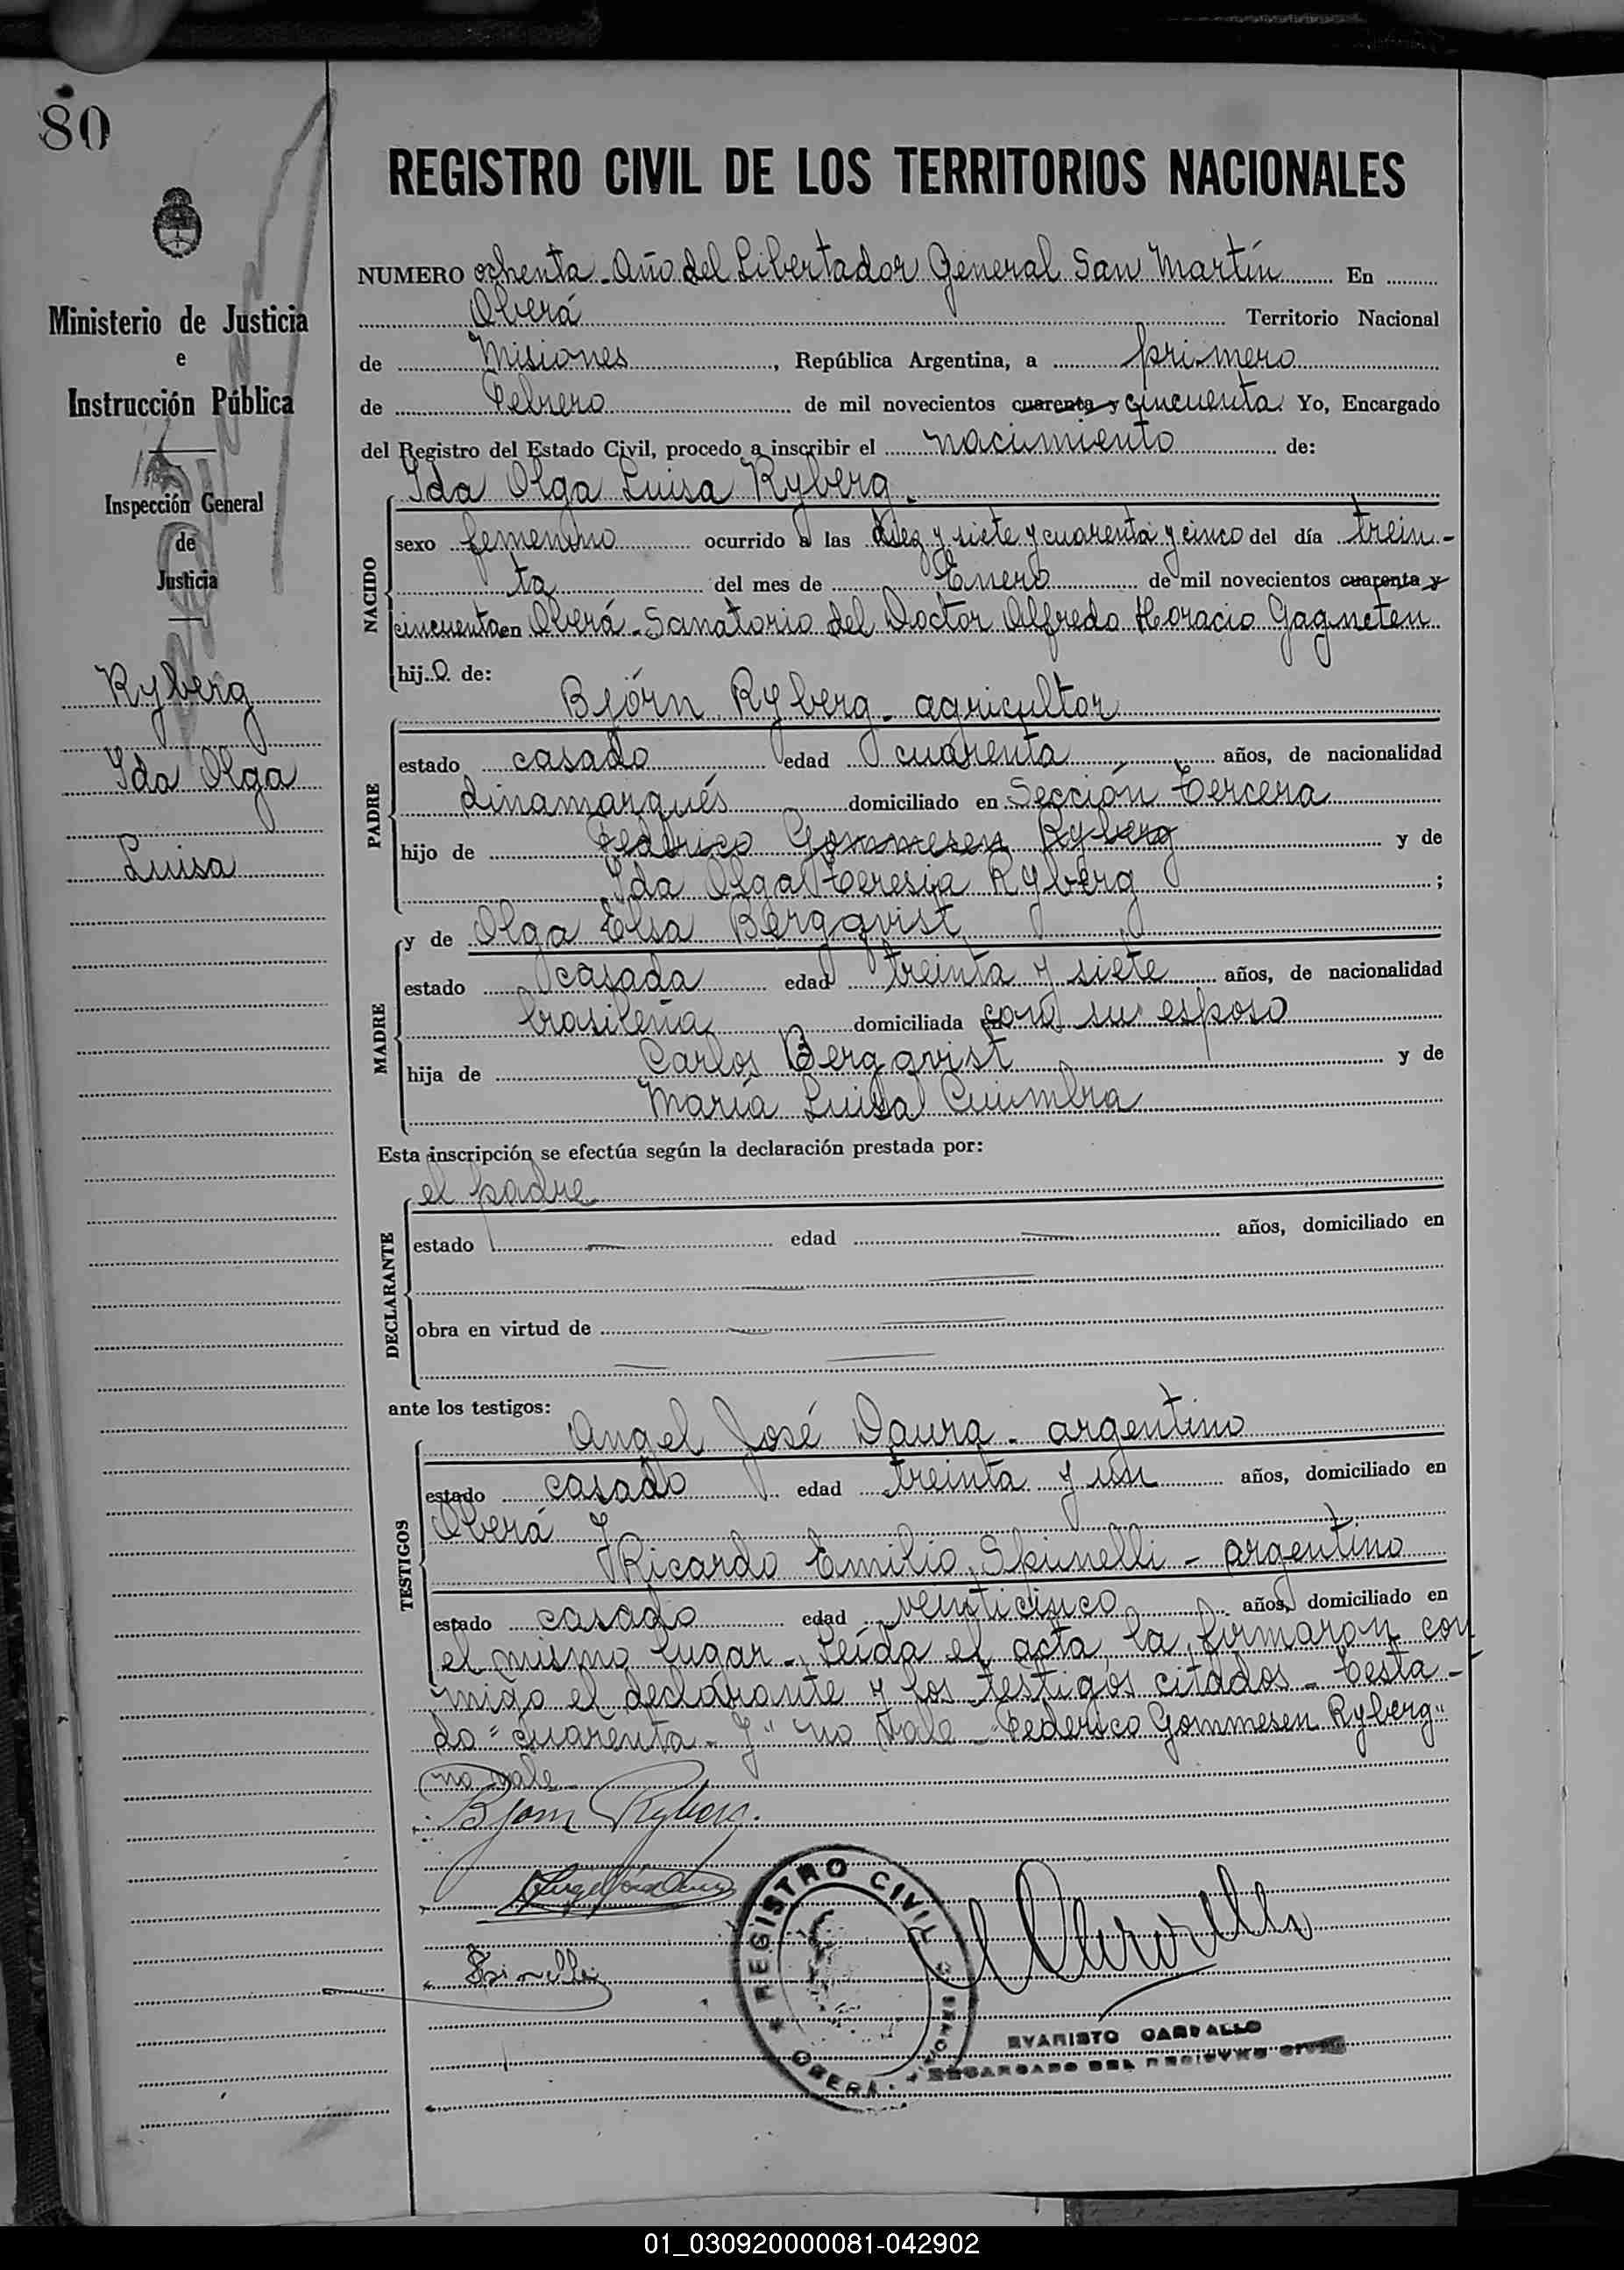 80
REGISTRO CIVIL DE LOS TERRITORIOS NACIONALES
Ministerio de Justicia
e
Instrucción Pública
Inspección General
de
Justicia
Ryberg
Ida Olga
Luisa
NUMERO ochenta - Año del Libertador General San Martín En
Oberá Territorio Nacional
de Misiones, República Argentina, a primero
de Febrero de mil novecientos cuarenta y cincuenta. Yo, Encargado
del Registro del Estado Civil, procedo a inscribir el nacimiento de:
NACIDO
Ida Olga Luisa Ryberg.
sexo femenino ocurrido a las diez y siete y cuarenta y cinco del día trein-
ta del mes de Enero de mil novecientos cuarenta y
cincuenta en Oberá - Sanatorio del Doctor Alfredo Horacio Gagneten
hij a de:
PADRE
Bjórn Ryberg - agricultor
estado casado edad cuarenta años, de nacionalidad
dinamarqués domiciliado en Sección Tercera
hijo de Federico Gommesen Ryberg y de
Ida Olga Teresia Ryberg ;
MADRE
y de Olga Elsa Bergqvist
estado casada edad treinta y siete años, de nacionalidad
brasileña domiciliada en con su esposo
hija de Carlos Bergqvist y de
María Luisa Cuimbra
Esta inscripción se efectúa según la declaración prestada por:
DECLARANTE
el padre
estado — edad — años, domiciliado en
obra en virtud de
ante los testigos:
TESTIGOS
Angel José Daura - argentino
estado casado edad treinta y un años, domiciliado en
Oberá y
Ricardo Emilio Spinelli - argentino
estado casado edad veinticinco años, domiciliado en
el mismo lugar - Leída el acta, la firmaron con
migo el declarante y los testigos citados - Testa-
do "cuarenta - y" no vale - "Federico Gommesen Ryberg"
no vale
Bjørn Ryberg.
Spinelli
REGISTRO CIVIL
OBERÁ
EVARISTO CARVALLO
ENCARGADO DEL REGISTRO CIVIL
01_030920000081-042902